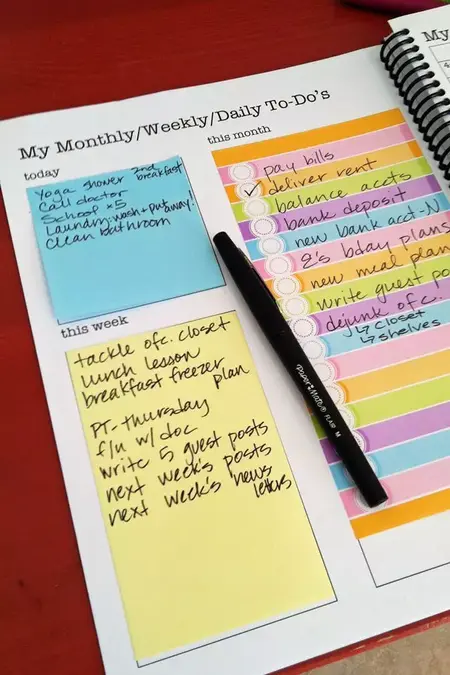 My
My Monthly/Weekly/Daily To-Do's
today
Yoga shower 2nd breakfast
Call doctor
School x5
Laundry: wash + put away!
Clean bathroom
this week
tackle ofc. closet
lunch lesson
breakfast freezer
plan
PT- thursday
f/u w/ doc
write 5 guest posts
next week's posts
next week's news
letters
this month
pay bills
deliver rent
balance accts
bank deposit
new bank acct-N
8's bday plans
new meal plan
write guest po
dejunk ofc.
↳ closet
↳ shelves
Paper Mate FLAIR M